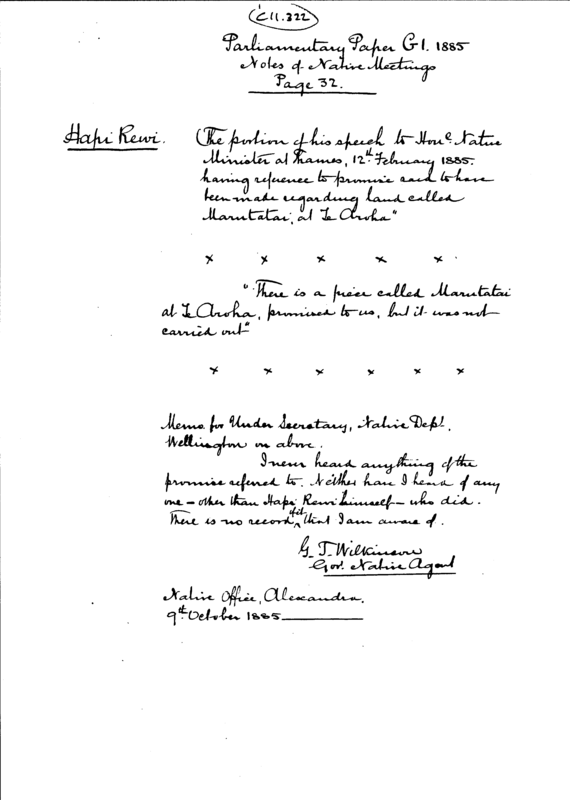 C11.322
Parliamentary Paper G1. 1885
Notes of Native Meetings
Page 32.
Hapi Rewi.
(The portion of his speech to Honᵉ. Native
Minister at Thames, 12th. February 1885.
having reference to promise said to have
been made regarding land called
Marutatai, at Te Aroha"
× × × × ×
"There is a piece called Marutatai
at Te Aroha, promised to us, but it was not
carried out"
× × × × × ×
Memo for Under Secretary, Native Dept.
Wellington on above.
I never heard anything of the
promise referred to. Neither have I heard of any
one – other than Hapi Rewi himself – who did.
There is no record of it that I am aware of.
G. T. Wilkinson
Gov. Native Agent
Native Office, Alexandra.
9th. October 1885